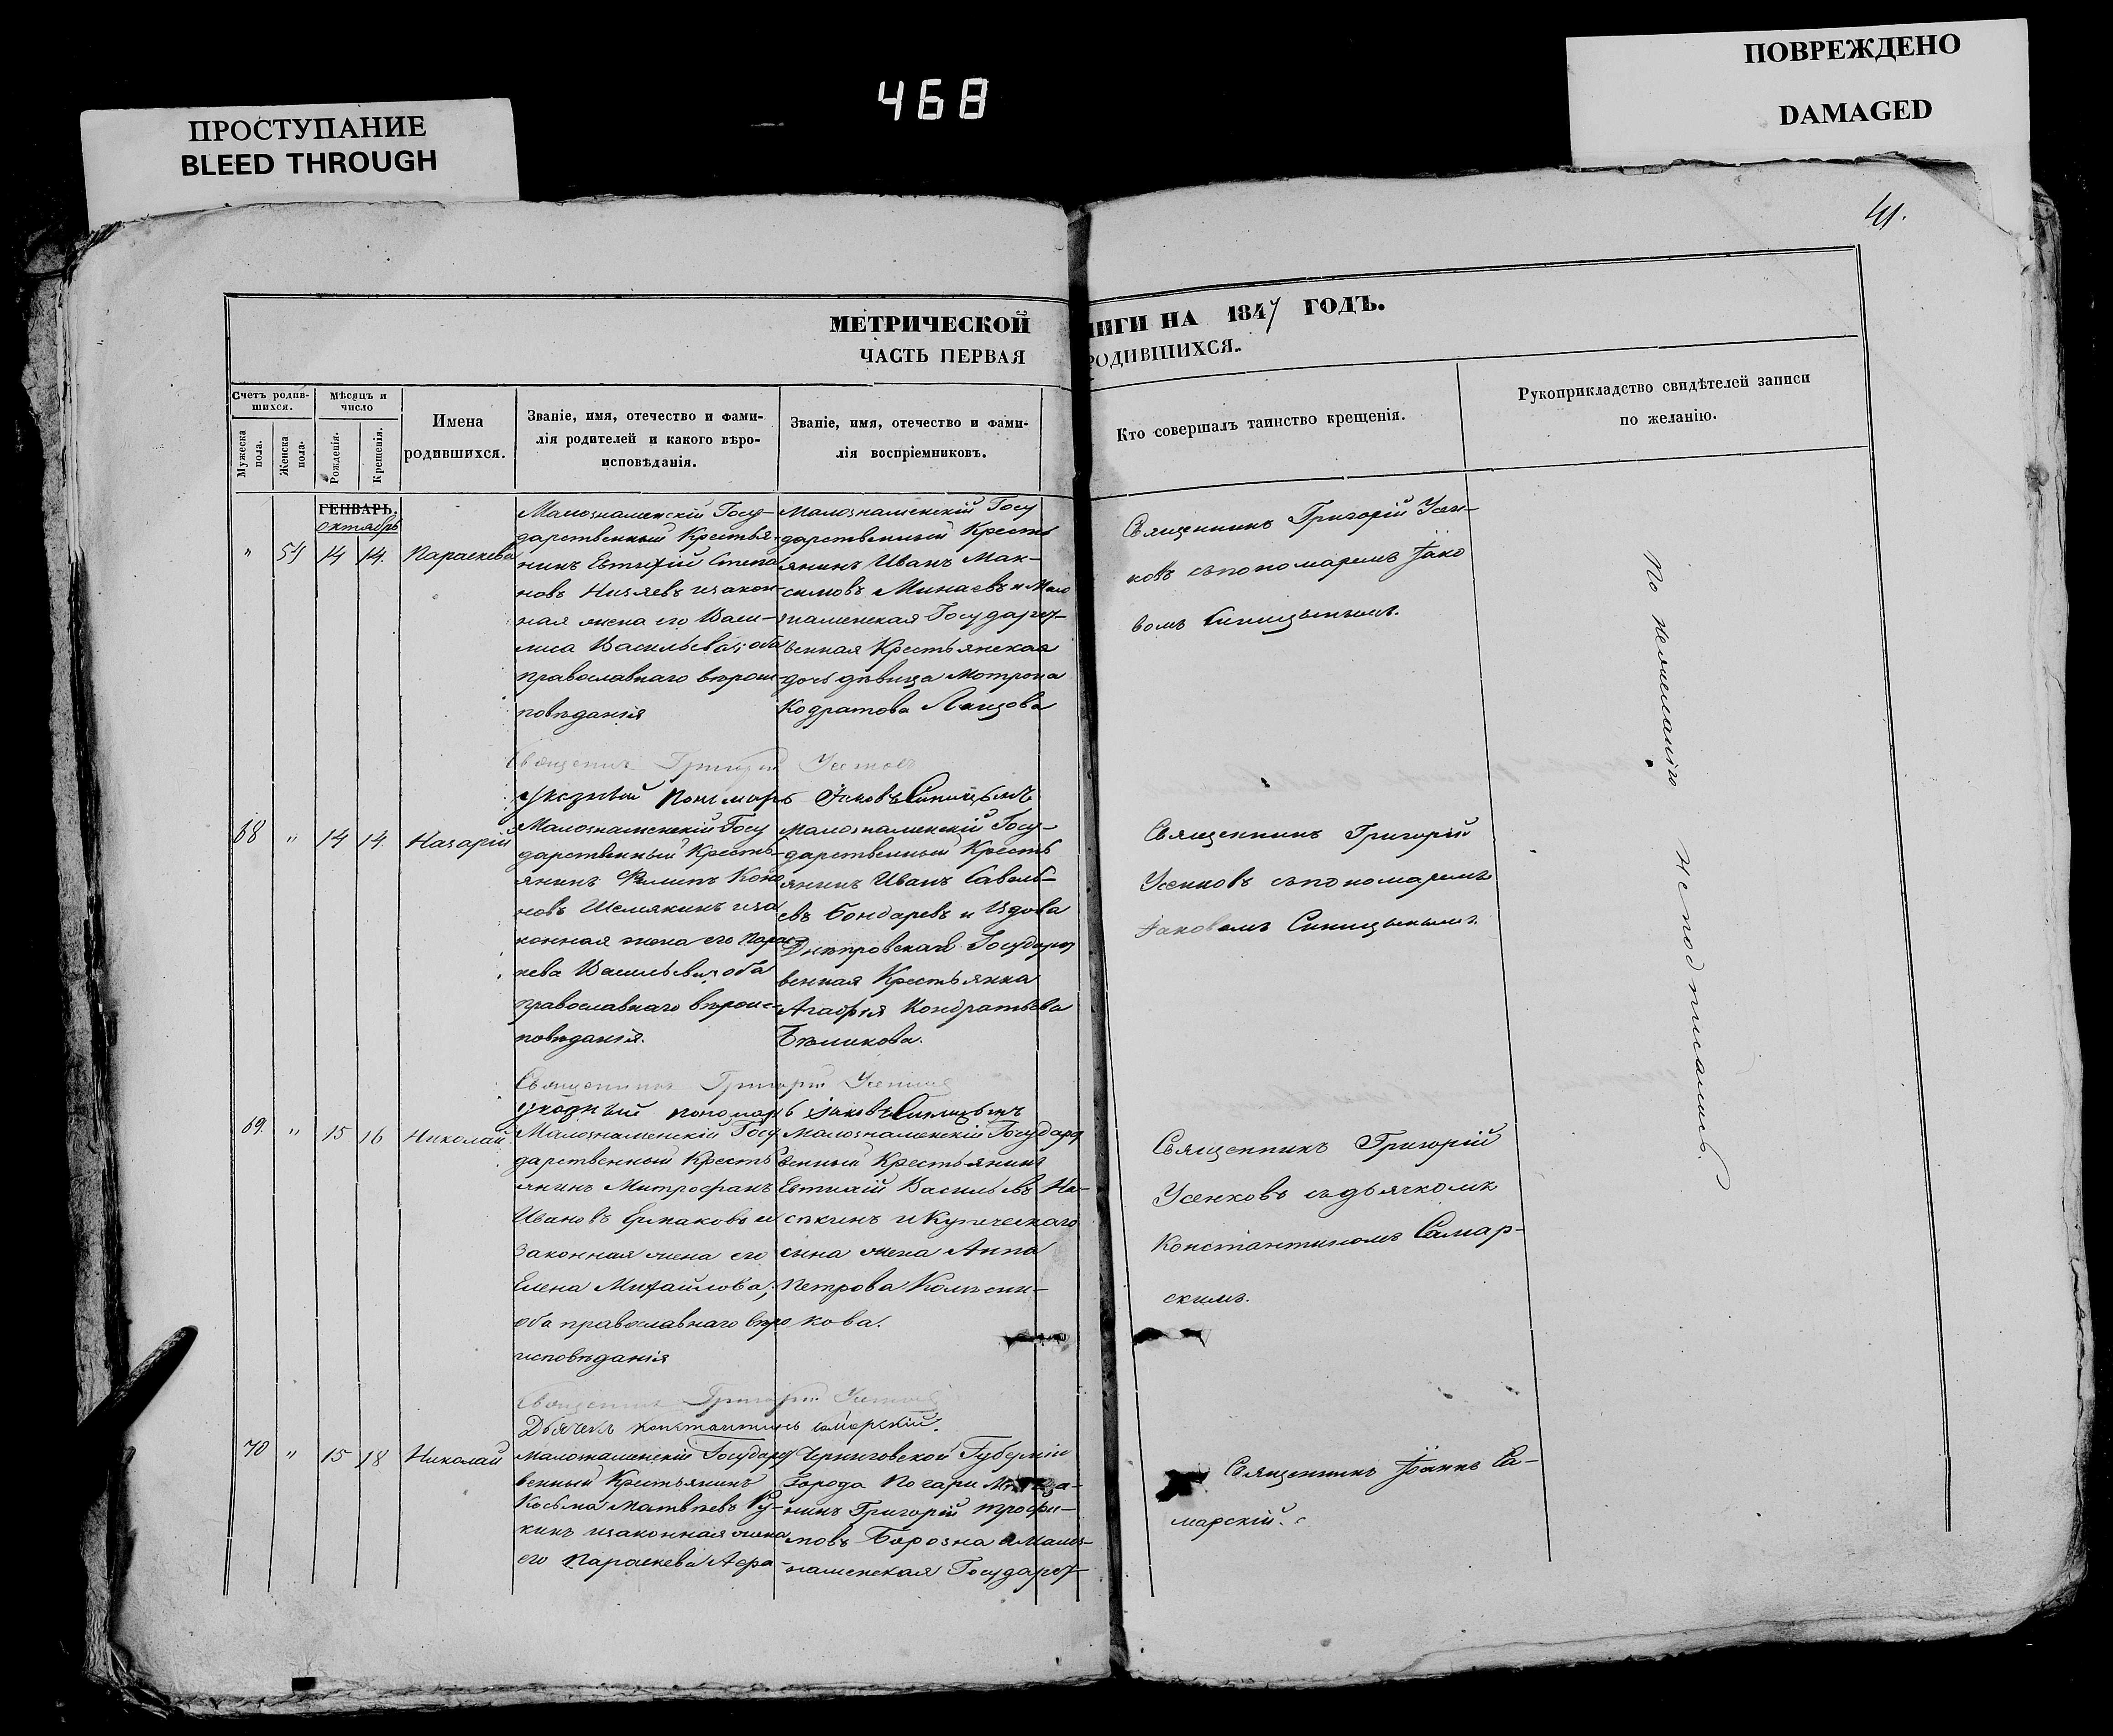 ПРОСТУПАНИЕ
BLEED THROUGH
468
ПОВРЕЖДЕНО
DAMAGED
41.
МЕТРИЧЕСКОЙ
ЧАСТЬ ПЕРВАЯ
НИГИ НА 1847 ГОДЪ.
РОДИВШИХСЯ.
Счетъ родив-
шихся.
Мужеска
пола.
Женска
пола.
Мѣсяцъ и
число
Рожденія.
Крещенія.
Имена
родившихся.
Званіе, имя, отечество и фами-
лія родителей и какого вѣро-
исповѣданія.
Званіе, имя, отечество и фами-
лія воспріемниковъ.
Кто совершалъ таинство крещенія.
Рукоприкладство свидѣтелей записи
по желанію.
ГЕНВАРЬ.
октябрь
" 14 14. Параскева
Малознаменскій Госу-
дарственный Крестья-
нинъ Евтихій Степа
новъ Низяевъ изакон-
ная жена его Васи-
лиса Васильева; оба
православнаго вѣроис-
повѣданія
Малознаменскій Госу
дарственный Кресть
янинъ Иванъ Мак-
симовъ Минаевъ и Мало
знаменская Государст-
венная Крестьянская
дочь дѣвица Мотрона
Кодратова
Священникъ Григорій Усен-
ковъ съпономаремъ Іако
вомъ Синицынымъ.
По нежеланію неподписались.
Священникъ Григорій Усенковъ
Указный Пономарь Іаковъ Синицынъ
68 " 14 14. Назарій
Малознаменскій Госу
дарственный Кресть-
янинъ Филипъ Коно
новъ Шемякинъ иза
конная жена его Парас
кева Васильева; оба
православнаго вѣроис-
повѣданія.
Малознаменскій Госу-
дарственный Кресть
янинъ Иванъ Савель-
евъ Бондаревъ и Вдова
Днѣпровская Государст
венная Крестьянка
Агафія Кондратьева
Бѣликова.
Священникъ Григорій
Усенковъ съпономаремъ
Іаковомъ Синицынымъ.
Священникъ Григорій Усенковъ
указный пономарь Іаковъ Синицынъ
69. " 15 16 Николай
Малознаменскій Госу
дарственный Кресть
янинъ Митрофанъ
Ивановъ Ермаковъ и
законная жена его
Елена Михайлова;
оба православнаго вѣро
исповѣданія
Малознаменскій Государст
венный Крестьянинъ
Евтихій Васильевъ На-
сѣкинъ и Купеческаго
сина жена Анна
Петрова Колесни-
кова.
Священникъ Григорій
Усенковъ съдьячкомъ
Константиномъ Самар-
скимъ.
Священникъ Григорій Усенковъ
Дьячекъ Константинъ Самарскій.
70 " 15 18 Николай
Малознаменскій Государст
венный Крестьянинъ
Косьма Матвѣевъ Ку-
кинъ изаконная жена
его Параскева Афа-
Черниговской Губерніи
Города Погари Мѣща-
нинъ Григорій Трофи-
мовъ Борозна иМало-
знаменская Государст-
Священникъ Іоаннъ Са-
марскій.